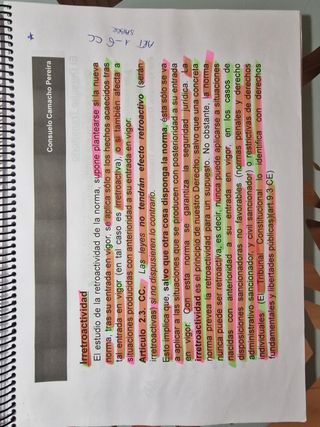 Consuelo Camacho Pereira
ART 1-6 CC
Irretroactividad
El estudio de la retroactividad de la norma, supone plantearse si la nueva
norma, tras su entrada en vigor, se aplica sólo a los hechos acaecidos tras
tal entrada en vigor (en tal caso es irretroactiva), o si también afecta a
situaciones producidas con anterioridad a su entrada en vigor.
Artículo 2.3. CC: Las leyes no tendrán efecto retroactivo (serán
irretroactivas) si no dispusieren lo contrario.
Esto implica que, salvo que otra cosa disponga la norma, ésta sólo se va
a aplicar a las situaciones que se producen con posterioridad a su entrada
en vigor. Con esta norma se garantiza la seguridad jurídica. La
irretroactividad es el principio de nuestro Derecho, salvo que una concreta
norma prevea la retroactividad para un supuesto. No obstante, la norma
nunca puede ser retroactiva, es decir, nunca puede aplicarse a situaciones
nacidas con anterioridad a su entrada en vigor, en los casos de
disposiciones sancionadoras no favorables (normas penales y derecho
administrativo sancionador, civil sancionador) o restrictivas de derechos
individuales (El Tribunal Constitucional lo identifica con derechos
fundamentales y libertades públicas)(art.9.3 CE)